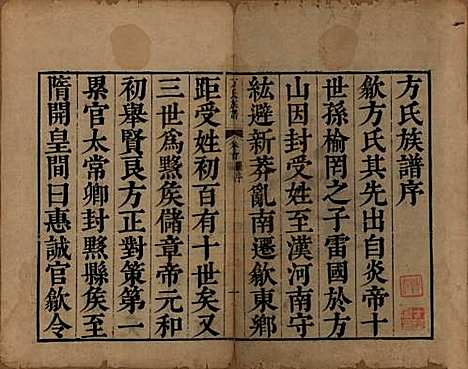 方氏族譜序
歙方氏其先出自炎帝十
世孫榆罔之子雷國於方
山因封受姓至漢河南守
紘避新莽亂南遷歙東鄉
距受姓初百有十世矣又
三世爲黟矦儲章帝元和
初舉賢良方正對策第一
累官太常卿封黟縣矦至
隋開皇間曰惠誠官歙令